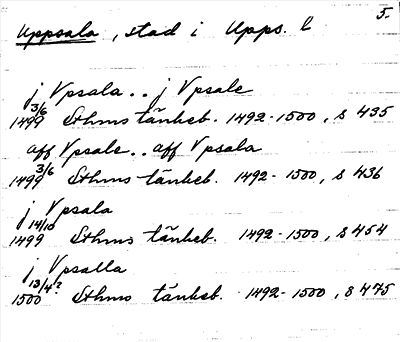 5.
Uppsala, stad i Upps. l
j Vpsala .. j Vpsale
3/6
1499 Sthms tänkeb. 1492-1500, s 435
aff Vpsale .. aff Vpsala
3/6
1499 Sthms tänkeb. 1492-1500, s 436
j Vpsala
14/10
1499 Sthms tänkeb. 1492-1500, s 454
j Vpsalla
13/4?
1500 Sthms tänkeb. 1492-1500, s 475